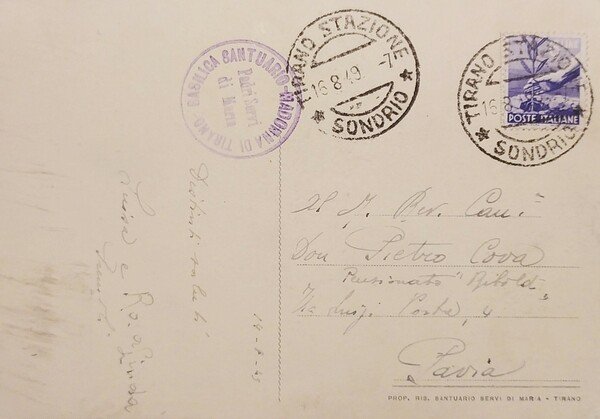 BASILICA SANTUARIO - MADONNA DI TIRANO -
Padri Servi
di Maria
TIRANO STAZIONE
16.8.49.-7
* SONDRIO *
TIRANO STAZIONE
16.8
* SONDRIO *
POSTE ITALIANE
Al M. Rev. Can.
Don Pietro Cova
Pensionato "Riboldi"
Via Luigi Porta, 4
Pavia
Distinti saluti
Luisa e
PROP. RIS. SANTUARIO SERVI DI MARIA - TIRANO